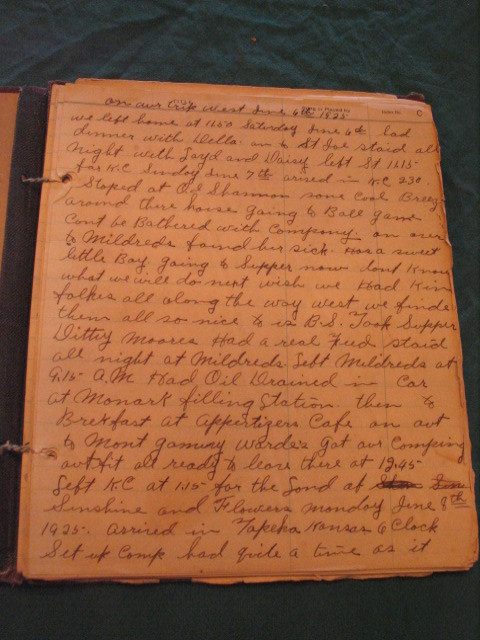 on our trip West June 6th 1925
we left home at 11.50 Saturday June 6th had
dinner with Della. on to St Joe staid all
night with Loyd and Daisy left St 11.15
for K.C Sunday June 7th arived in K.C 2.30
Stoped at O.J Shannon some Cool Breez
around there house going to Ball game
Cont be Bathered with Company. on over
to Mildreds found her sick. Has a sweet
little Boy. going to Supper now dont Know
what we will do next wish we Had Kin
folkes all along the way west we finde
them all so nice to us B.S. Took Supper
Ditty Moores Had a real Feed staid
all night at Mildreds. Left Mildreds at
9.15 A.M Had Oil Drained in Car
at Monark filling Station. then to
Brekfast at Appertigers Cafe. on out
to Mont gamury Wardes got our Compeing
outfit all ready to leave there at 12.45
Left KC at 1.15 for the Lond at
Sunshine and Flowers Monday June 8th
1925. Arrived in Tapeka Kansas 6 Clock
Set up Comp had quite a time as it